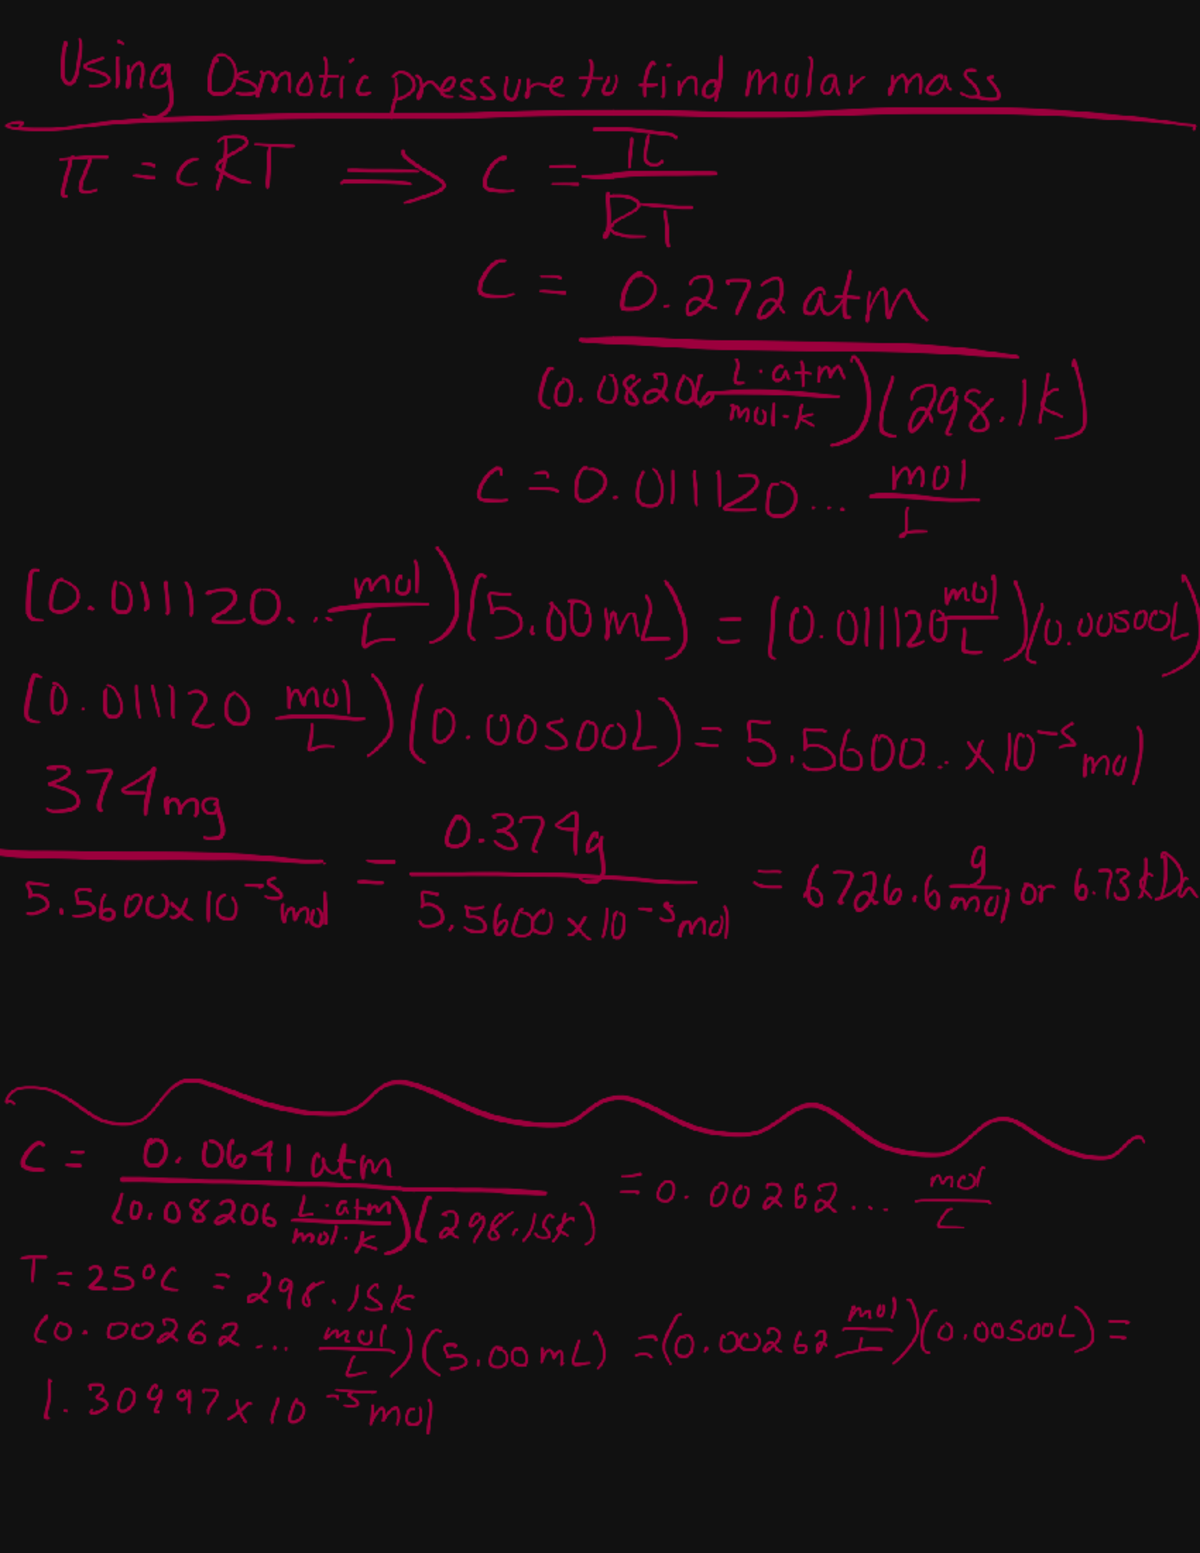 Using Osmotic pressure to find molar mass
π = cRT ⟹ c = π / RT
c = 0.272 atm / (0.08206 L·atm / mol·k)(298.1k)
c = 0.011120... mol / L
(0.011120... mol / L)(5.00 mL) = (0.011120 mol / L)(0.00500L)
(0.011120 mol / L)(0.00500L) = 5.5600.. x 10⁻⁵ mol
374mg / 5.5600x10⁻⁵ mol = 0.374g / 5.5600 x 10⁻⁵ mol = 6726.6 g / mol or 6.73 kDa
c = 0.0641 atm / (0.08206 L·atm / mol·k)(298.15k) = 0.00262... mol / L
T = 25°C = 298.15k
(0.00262... mol / L)(5.00 mL) = (0.00262 mol / L)(0.00500L) =
1.30997 x 10⁻⁵ mol